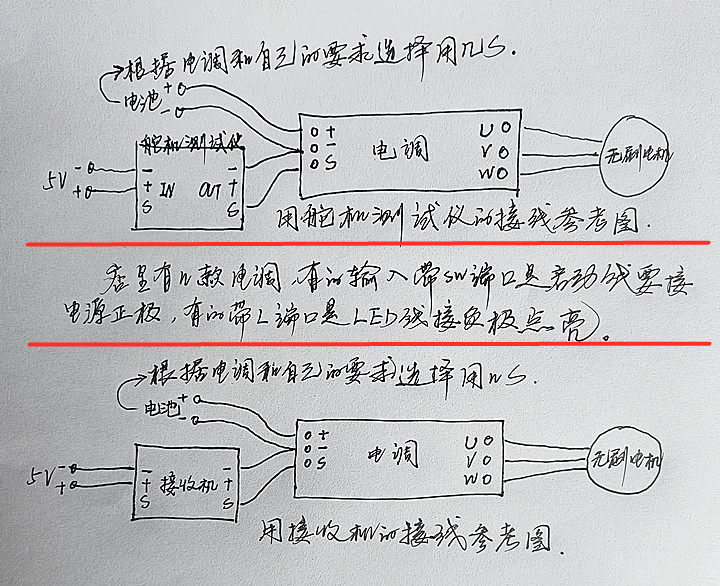 根据电调和自己的要求选择用nS.
电池 + -
舵机测试仪
+ - S 电调 U V W 无刷电机
5V - + - + S IN OUT - + S
用舵机测试仪的接线参考图.
店里有n款电调,有的输入带SW端口是启动线要接
电源正极,有的带L端口是LED线接负极点亮)。
根据电调和自己的要求选择用nS.
电池 + -
+ - S 电调 U V W 无刷电机
5V - + - + S 接收机 - + S
用接收机的接线参考图.